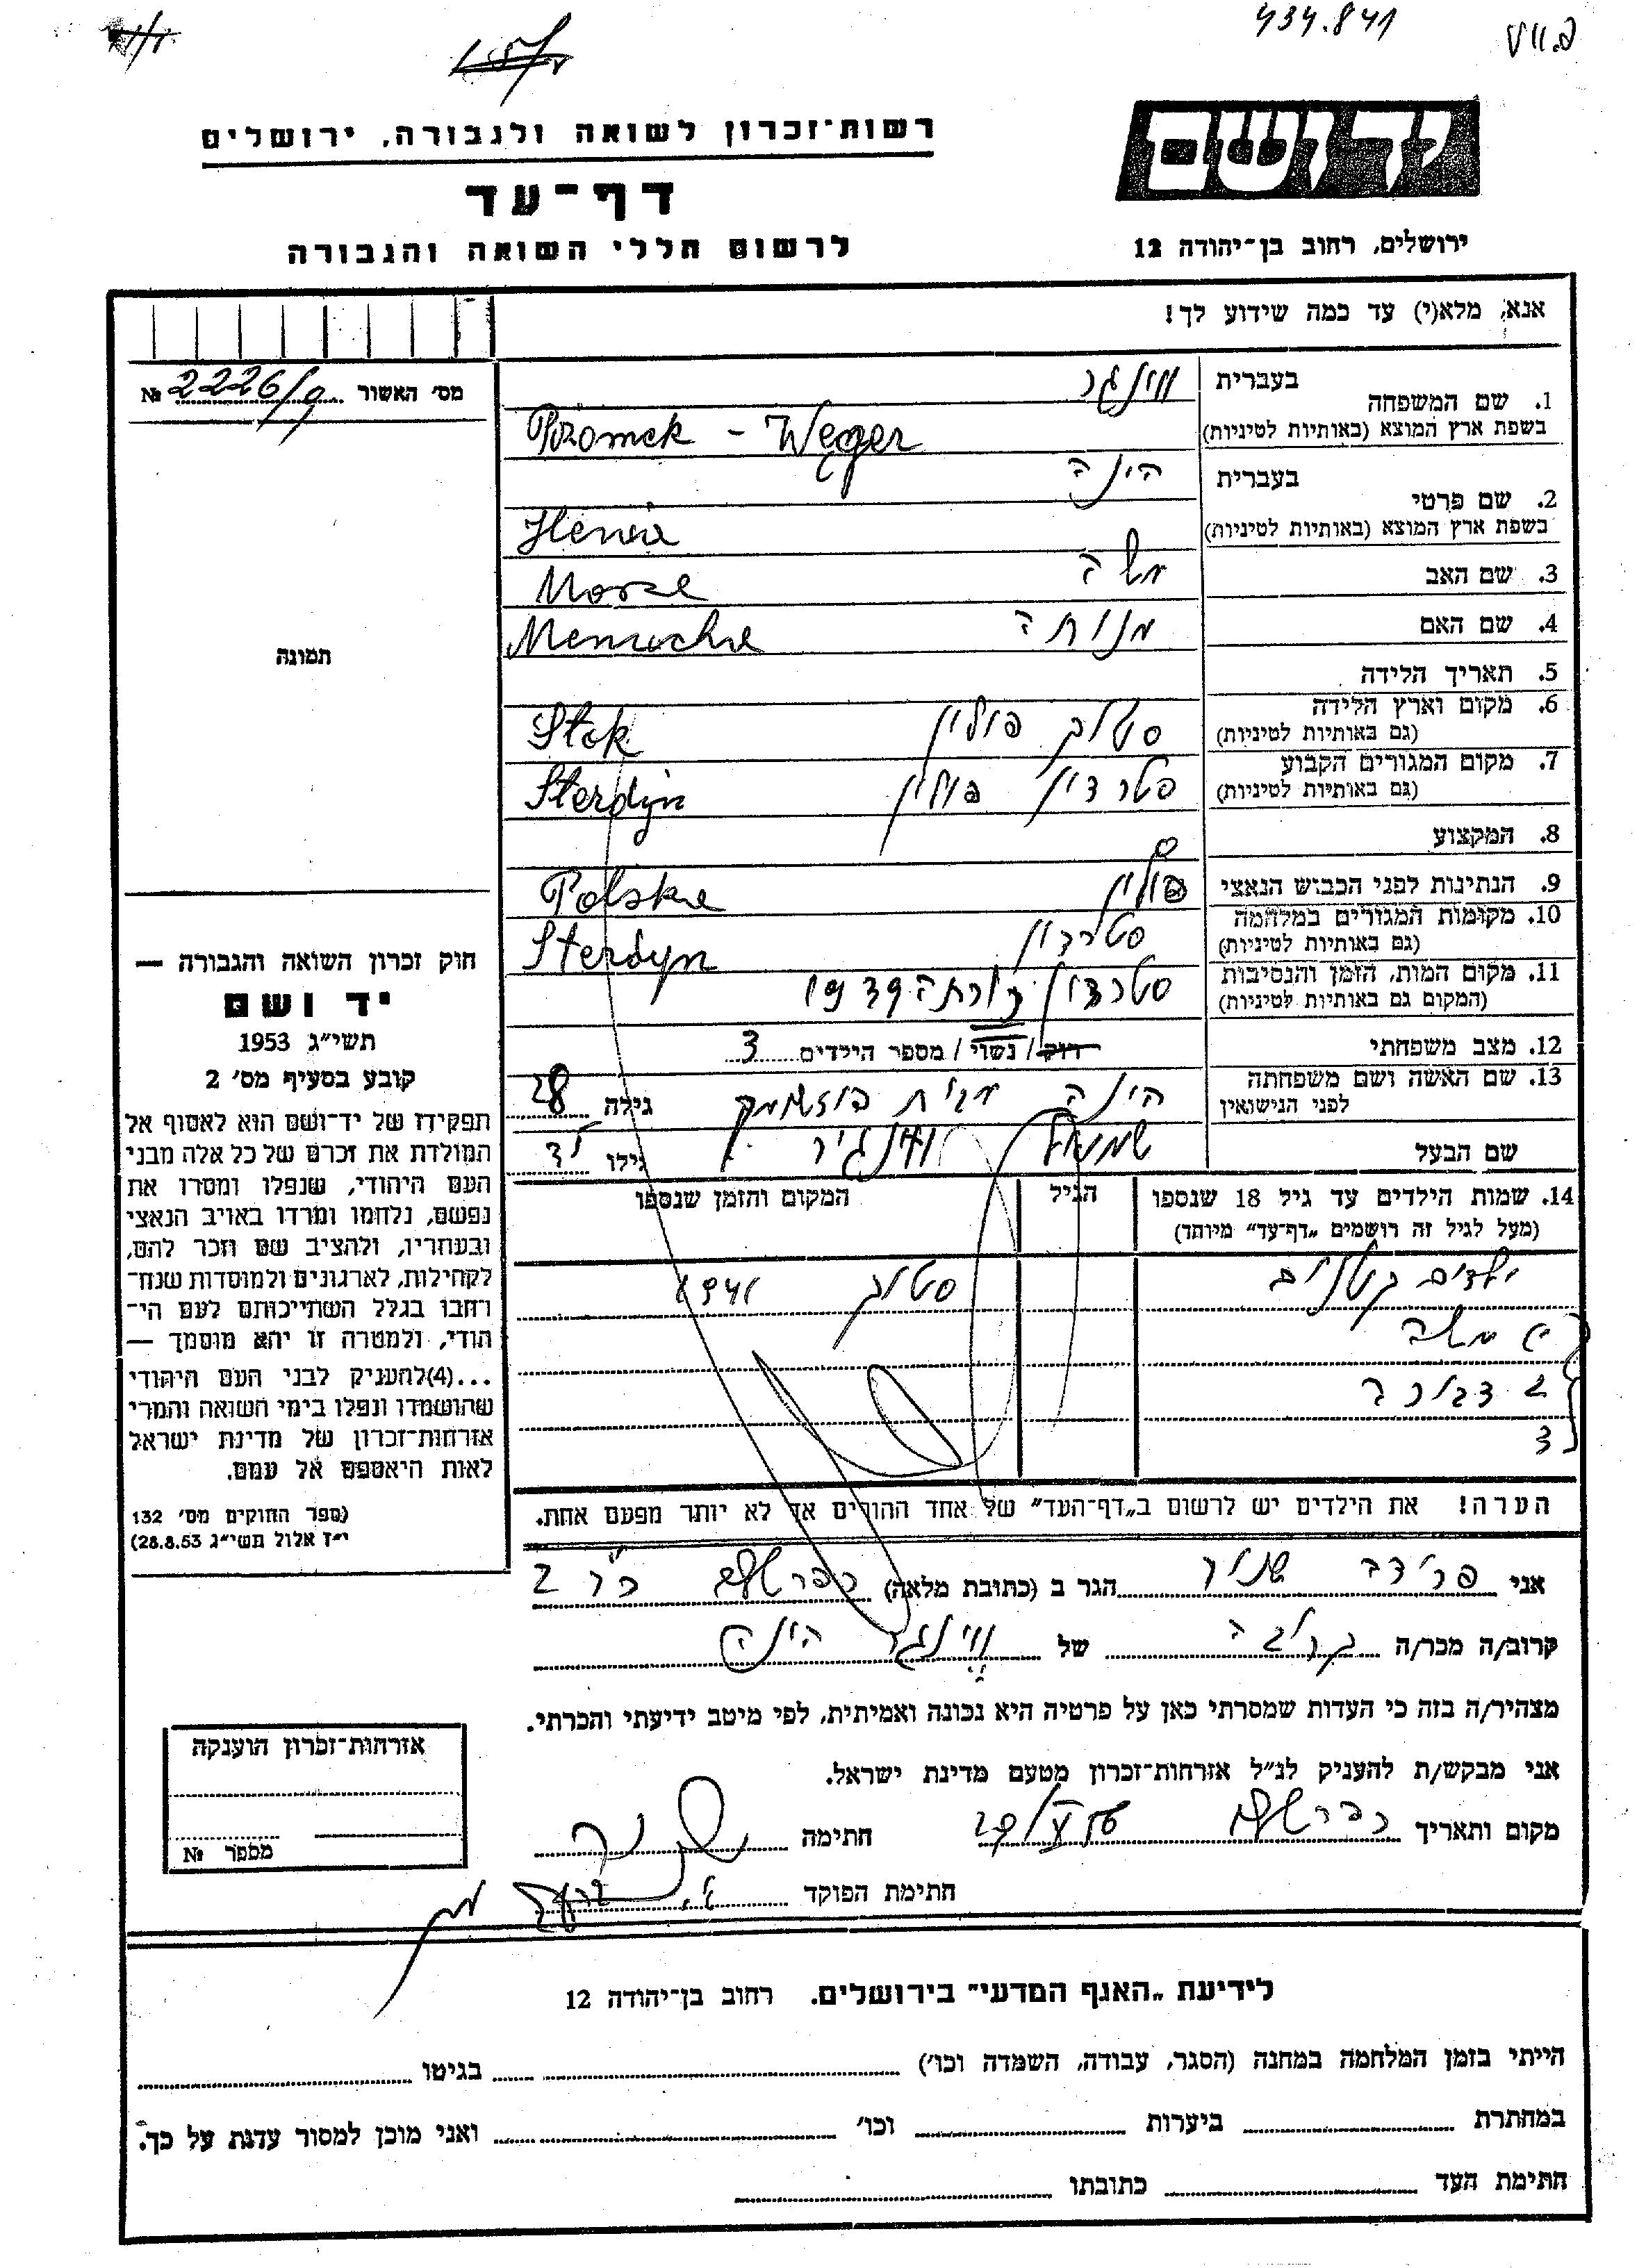 434.841
יד ושם
רשות־זכרון לשואה ולגבורה, ירושלים
דף־עד
לרשום חללי השואה והגבורה
ירושלים, רחוב בן־יהודה 12
אנא, מלא(י) עד כמה שידוע לך!
מס׳ האשור № 2226/
1. שם המשפחה
בעברית וינגר
בשפת ארץ המוצא (באותיות לטיניות) Przomek - Węger
2. שם פרטי
בעברית הינה
בשפת ארץ המוצא (באותיות לטיניות) Henia
3. שם האב משה Mosze
4. שם האם מנוחה Menuche
תמונה
5. תאריך הלידה
6. מקום וארץ הלידה סטוק פולין Stok
(גם באותיות לטיניות)
7. מקום המגורים הקבוע סטרדין פולין Sterdyn
(גם באותיות לטיניות)
8. המקצוע
9. הנתינות לפני הכבוש הנאצי פולין Polska
10. מקומות המגורים במלחמה סטרדין Sterdyn
(גם באותיות לטיניות)
11. מקום המות, הזמן והנסיבות סטרדין 1939
(המקום גם באותיות לטיניות)
12. מצב משפחתי רווק / נשוי / מספר הילדים 3
13. שם האשה ושם משפחתה הינה מבית גילה 28
לפני הנישואין
שם הבעל שמואל וינגר גילו
14. שמות הילדים עד גיל 18 שנספו הגיל המקום והזמן שנספו
(מעל לגיל זה רושמים „דף־עד״ מיוחד)
ילדים קטנים סטוק 1941
משה
2 דבורה
3
הערה! את הילדים יש לרשום ב„דף־העד״ של אחד ההורים אך לא יותר מפעם אחת.
חוק זכרון השואה והגבורה —
יד ושם
תשי״ג 1953
קובע בסעיף מס׳ 2
תפקידו של יד־ושם הוא לאסוף אל
המולדת את זכרם של כל אלה מבני
העם היהודי, שנפלו ומסרו את
נפשם, נלחמו ומרדו באויב הנאצי
ובעוזריו, ולהציב שם וזכר להם,
לקהילות, לארגונים ולמוסדות שנח־
רחבו בגלל השתייכותם לעם הי־
הודי, ולמטרה זו יהא מוסמך —
...(4)להעניק לבני העם היהודי
שהושמדו ונפלו בימי השואה והמרי
אזרחות־זכרון של מדינת ישראל
לאות היאספם אל עמם.
(ספר החוקים מס׳ 132
י״ז אלול תשי״ג 28.8.53)
אני שניר הגר ב (כתובת מלאה)
קרוב/ה מכר/ה קרובה של וינגר הינה
מצהיר/ה בזה כי העדות שמסרתי כאן על פרטיה היא נכונה ואמיתית, לפי מיטב ידיעתי והכרתי.
אני מבקש/ת להעניק לנ״ל אזרחות־זכרון מטעם מדינת ישראל.
מקום ותאריך חתימה
חתימת הפוקד
אזרחות־זכרון הוענקה
מספר №
לידיעת „האגף המדעי״ בירושלים. רחוב בן־יהודה 12
הייתי בזמן המלחמה במחנה (הסגר, עבודה, השמדה וכו׳) בגיטו
במחתרת ביערות וכו׳ ואני מוכן למסור עדות על כך.
חתימת העד כתובתו